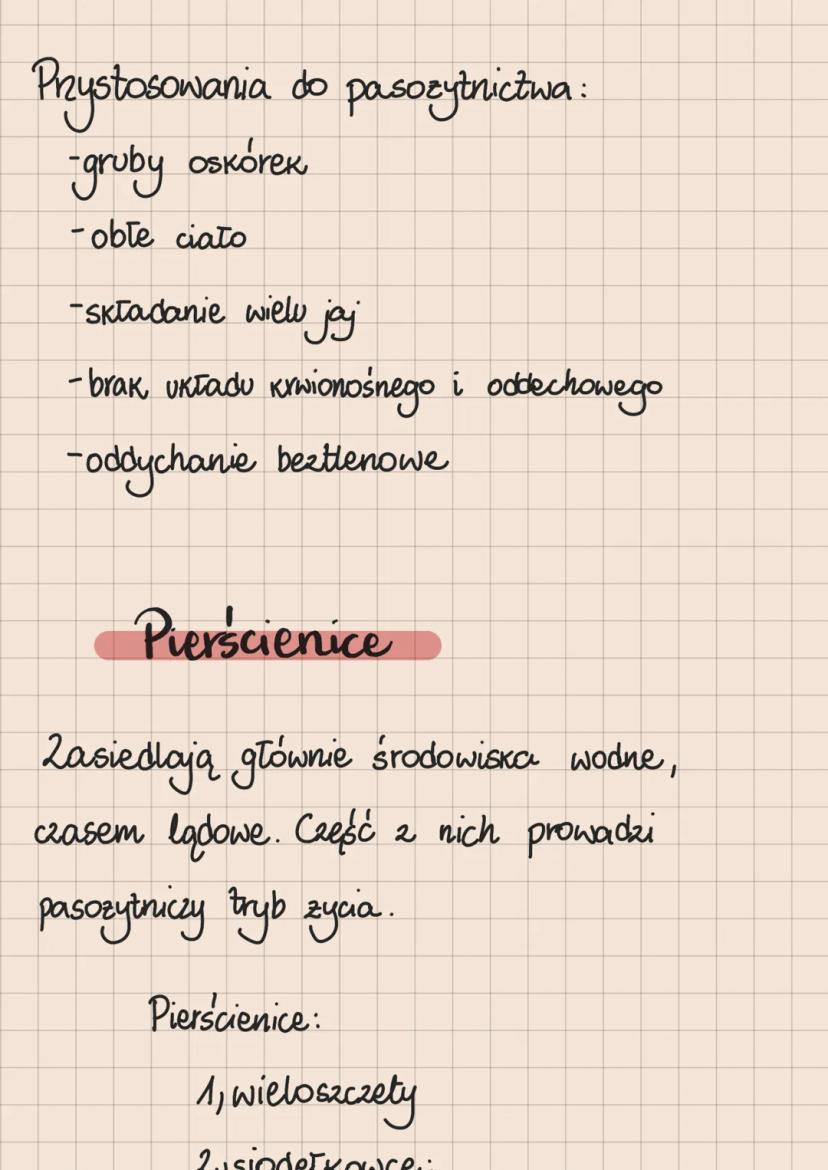 Przystosowania do pasożytnictwa:
-gruby oskórek
-obłe ciało
-składanie wielu jaj
-brak układu krwionośnego i oddechowego
-oddychanie beztlenowe
Pierścienice
Zasiedlają głównie środowiska wodne,
czasem lądowe. Część z nich prowadzi
pasożytniczy tryb życia.
Pierścienice:
1, wieloszczety
2, siodełkowce: